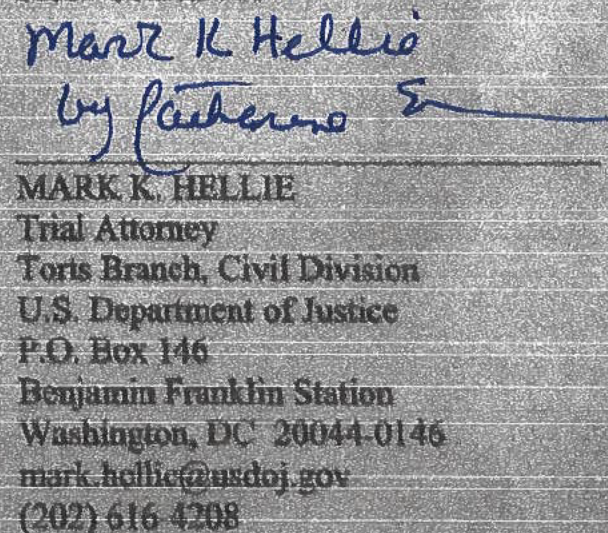 Mark K Hellie
by Catherine
MARK K. HELLIE
Trial Attorney
Torts Branch, Civil Division
U.S. Department of Justice
P.O. Box 146
Benjamin Franklin Station
Washington, DC 20044-0146
mark.hellie@usdoj.gov
(202) 616-4208